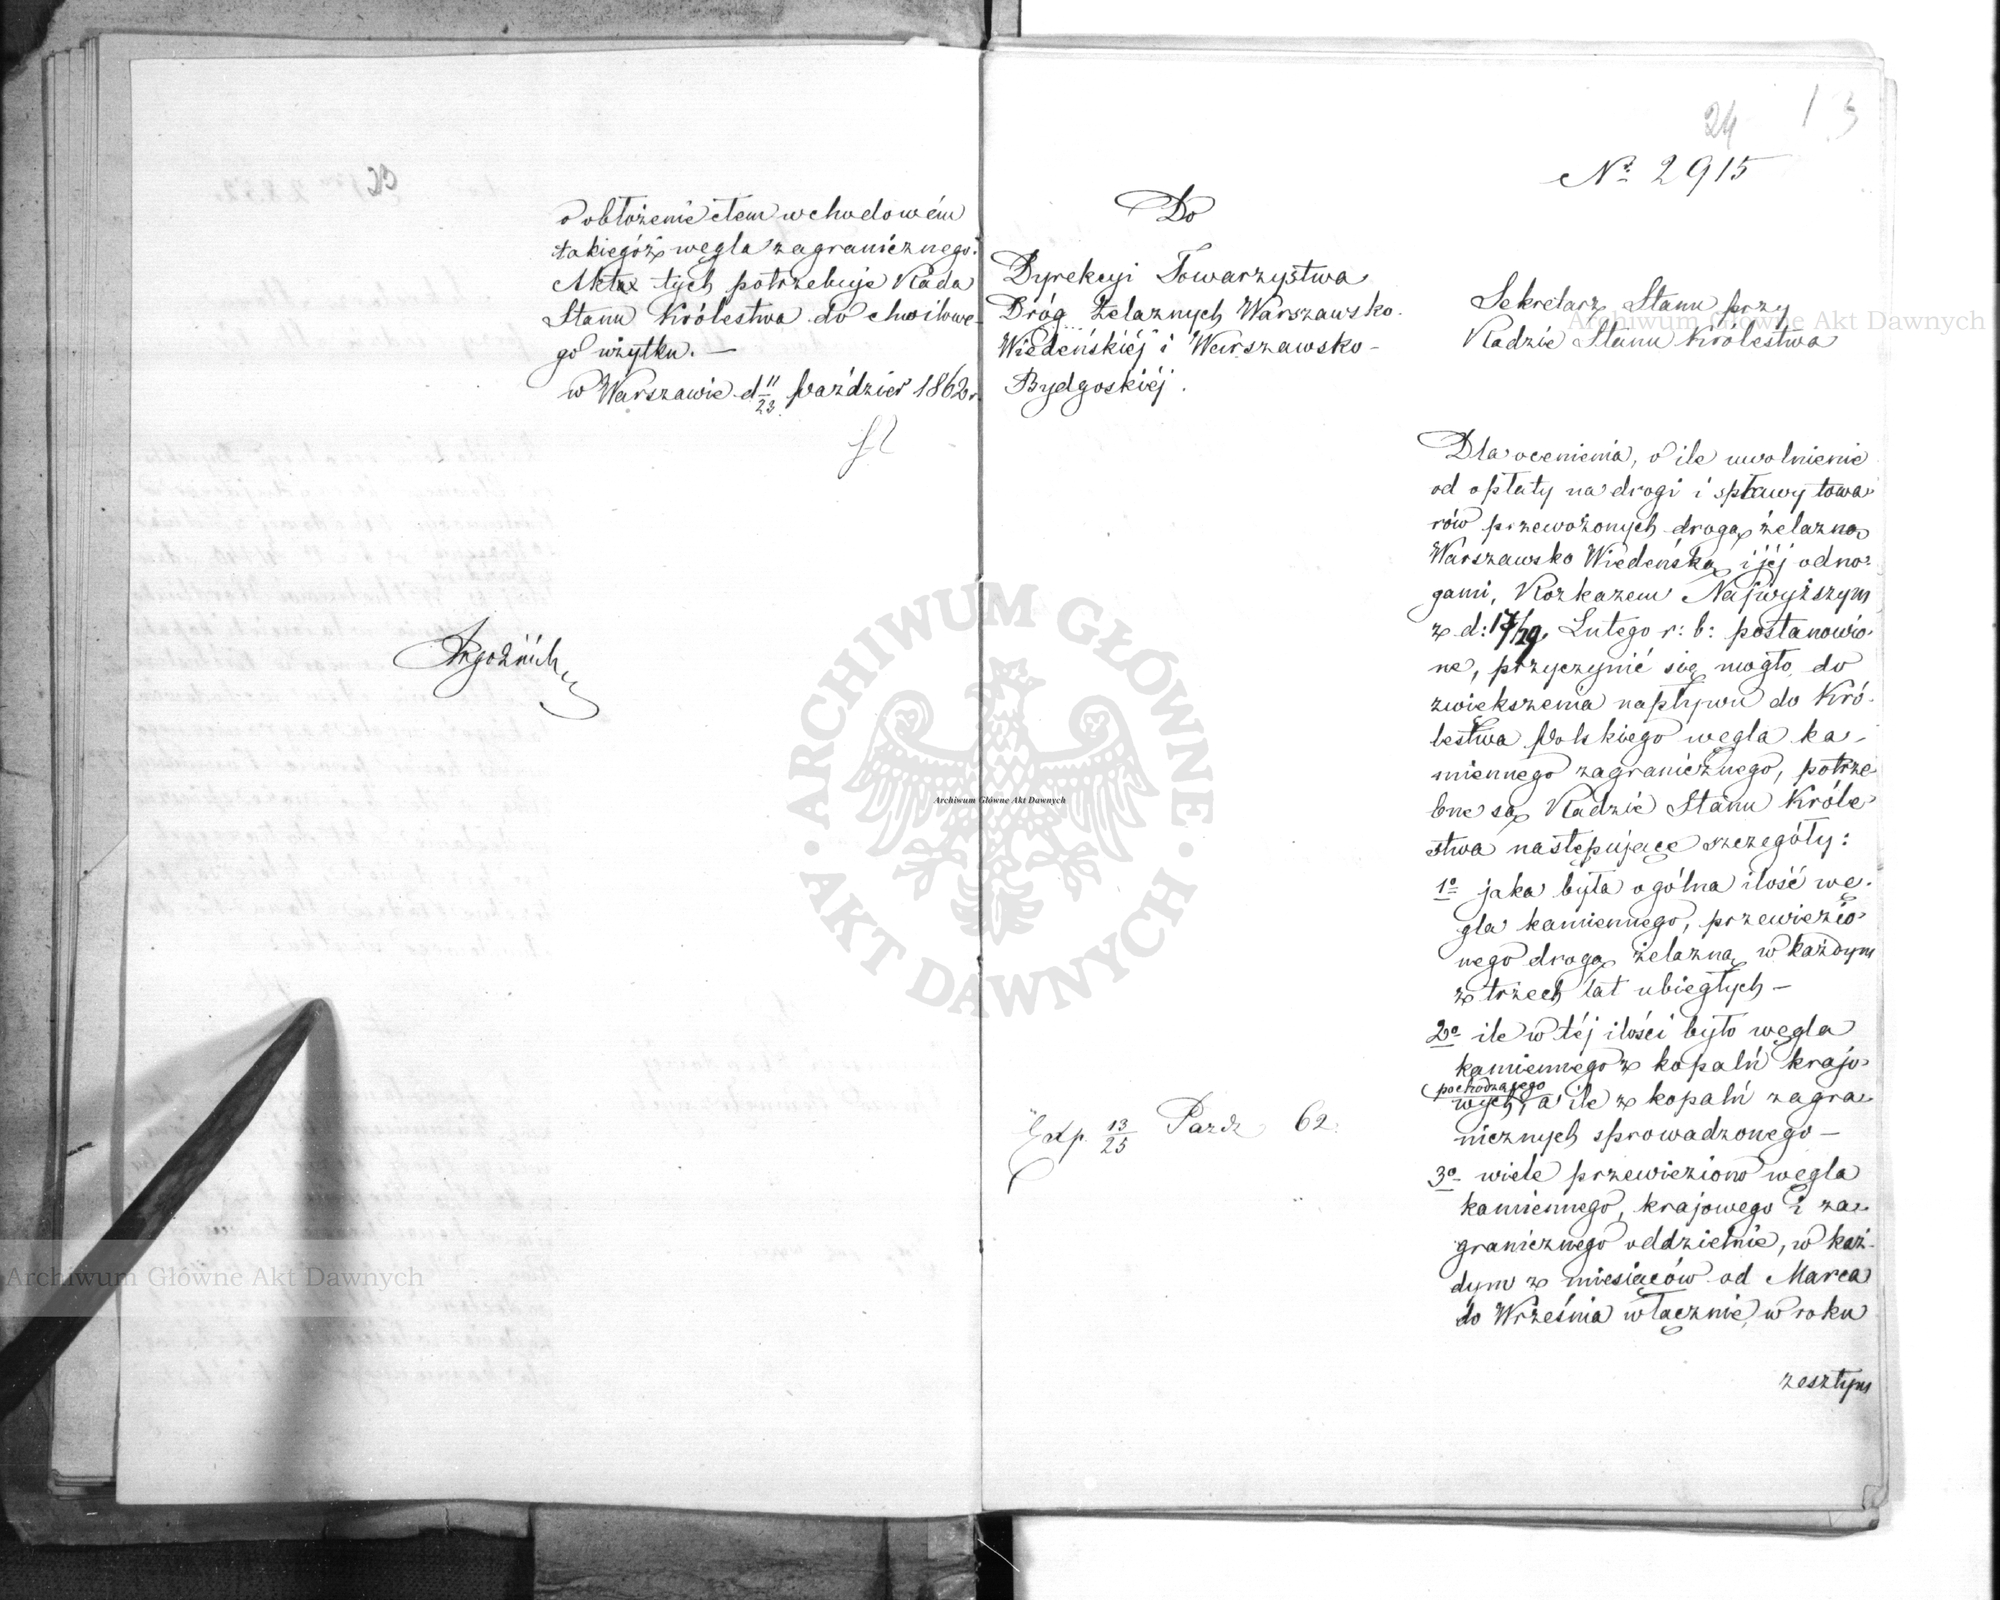 23
o obłożenie cłem wchodowém
takiegóż węgla zagranicznego.
Akta tych potrzebuje Rada
Stanu Królestwa do chwilowe-
go użytku. —
w Warszawie d. 11/23 Paździer 1862 r.
24 13
№ 2915
Do
Dyrekcyi Towarzystwa
Dróg Żelaznych Warszawsko-
Wiedeńskiéj i Warszawsko-
Bydgoskiéj.
Sekretarz Stanu przy
Radzie Stanu Królestwa
Dla ocenienia, o ile uwolnienie
od opłaty na drogi i spławy towa-
rów przewożonych drogą żelazną
Warszawsko Wiedeńską i jéj odno-
gami, Rozkazem Najwyższym
z d: 17/29 Lutego r: b: postanowio-
ne, przyczynić się mogło do
zwiększenia napływu do Kró-
lestwa Polskiego węgla ka-
miennego zagranicznego, potrze-
bne są Radzie Stanu Króle-
stwa następujące szczegóły:
1º jaka była ogólna ilość wę-
gla kamiennego, przewiezio-
nego drogą żelazną w każdym
z trzech lat ubiegłych —
2º ile w téj ilości było węgla
kamiennego z kopalń krajo-
pochodzącego
wych, a ile z kopalń zagra-
nicznych sprowadzonego —
3º wiele przewieziono węgla
kamiennego, krajowego i za-
granicznego oddzielnie, w każ-
dym z miesięców od Marca
do Września włącznie, w roku
zeszłym
Exp. 13/25 Paźdz 62.
ARCHIWUM GŁÓWNE AKT DAWNYCH
Archiwum Główne Akt Dawnych
Archiwum Główne Akt Dawnych
Archiwum Główne Akt Dawnych